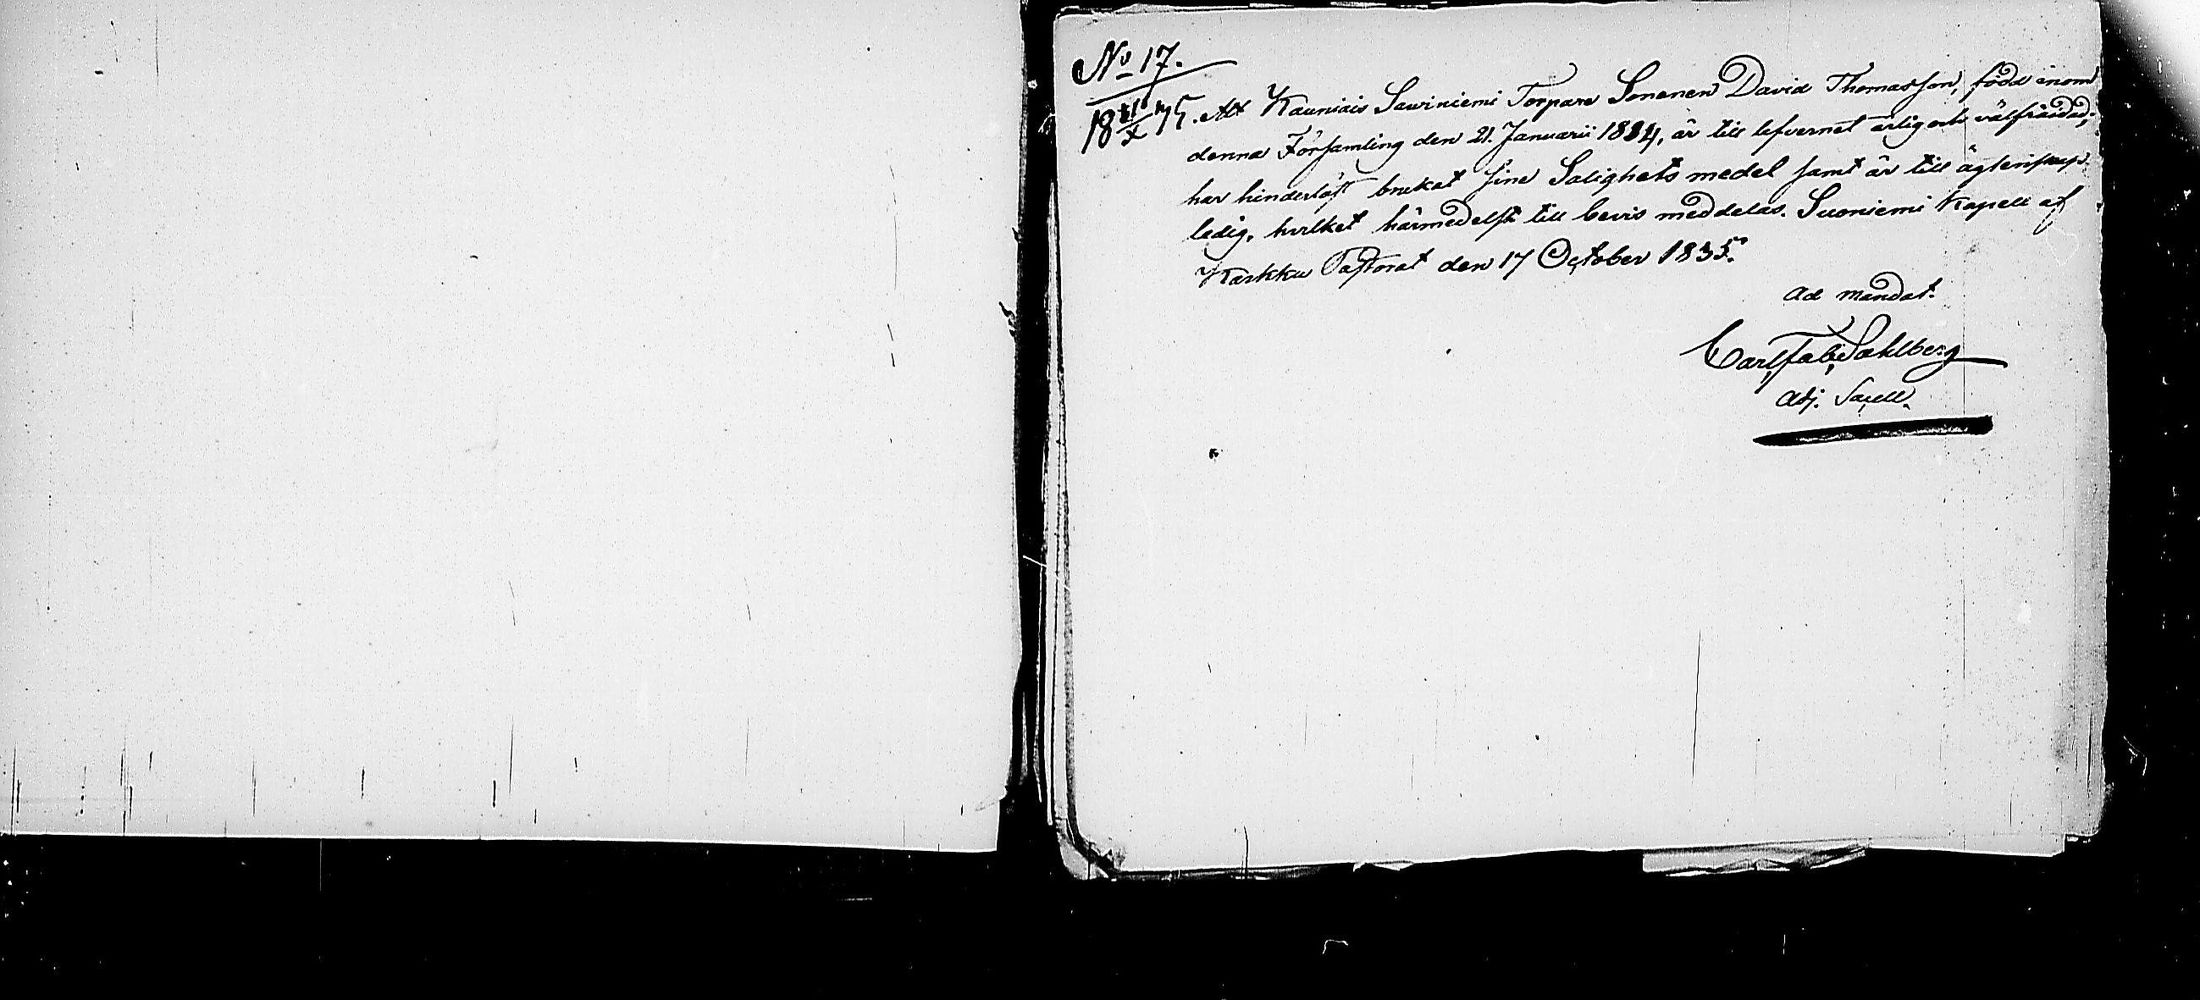 No 17.
18 21/X 75. Att Kauniais Sauriniemi Torpare Sonenen David Thomasson, född inom
denna Församling den 21. Januarii 1814, är till lefvernet ärlig och välfräjdad;
har hinderlöst brukat sine Salighets medel samt är till ägtenskap
ledig, hvilket härmedelst till bevis meddelas. Suoniemi Kapell af
Karkku Pastorat den 17 October 1835.
Ad mandat.
Carl Fab: Sahlberg
Adj. Sacell.